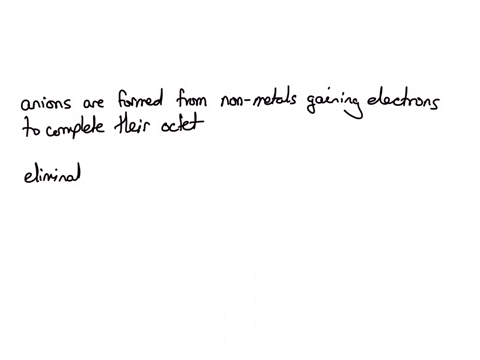 anions are formed from non-metals gaining electrons
to complete their octet
eliminal